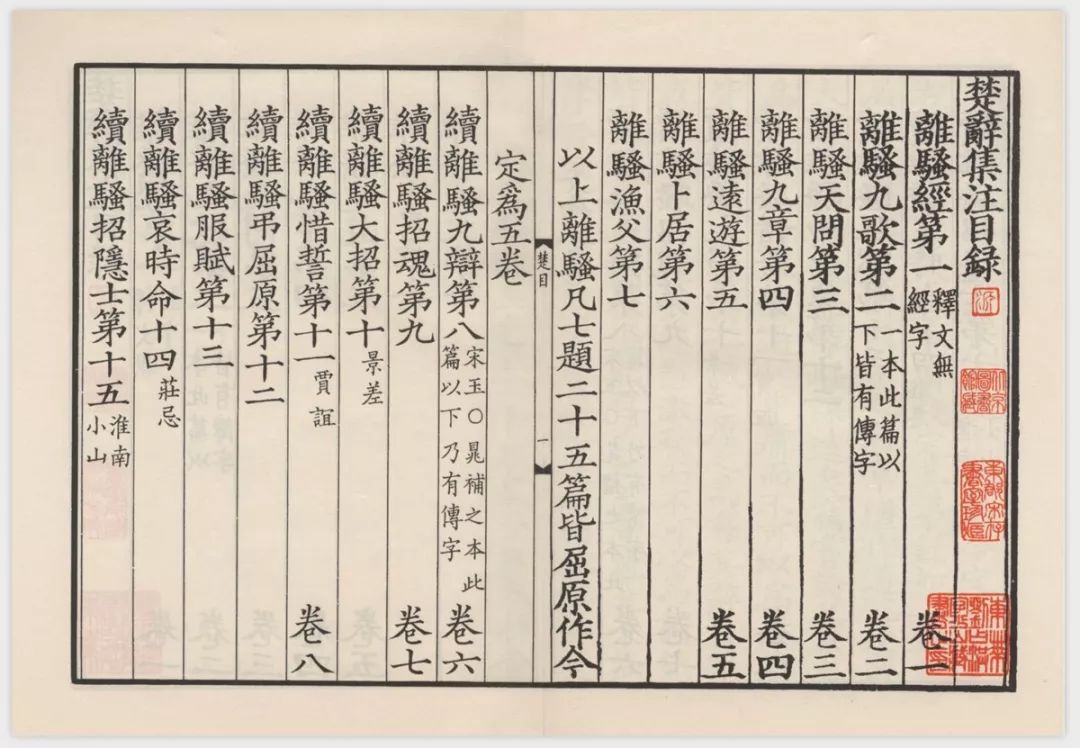 楚辭集注目録
離騷經第一 釋文無經字 卷一
離騷九歌第二 一本此篇以下皆有傳字 卷二
離騷天問第三 卷三
離騷九章第四 卷四
離騷遠遊第五 卷五
離騷卜居第六
離騷漁父第七
以上離騷凡七題二十五篇皆屈原作今
定爲五卷
楚目 一
續離騷九辯第八 宋玉〇晁補之本此篇以下乃有傳字 卷六
續離騷招魂第九 卷七
續離騷大招第十 景差
續離騷惜誓第十一 賈誼 卷八
續離騷弔屈原第十二
續離騷服賦第十三
續離騷哀時命十四 莊忌
續離騷招隱士第十五 淮南小山